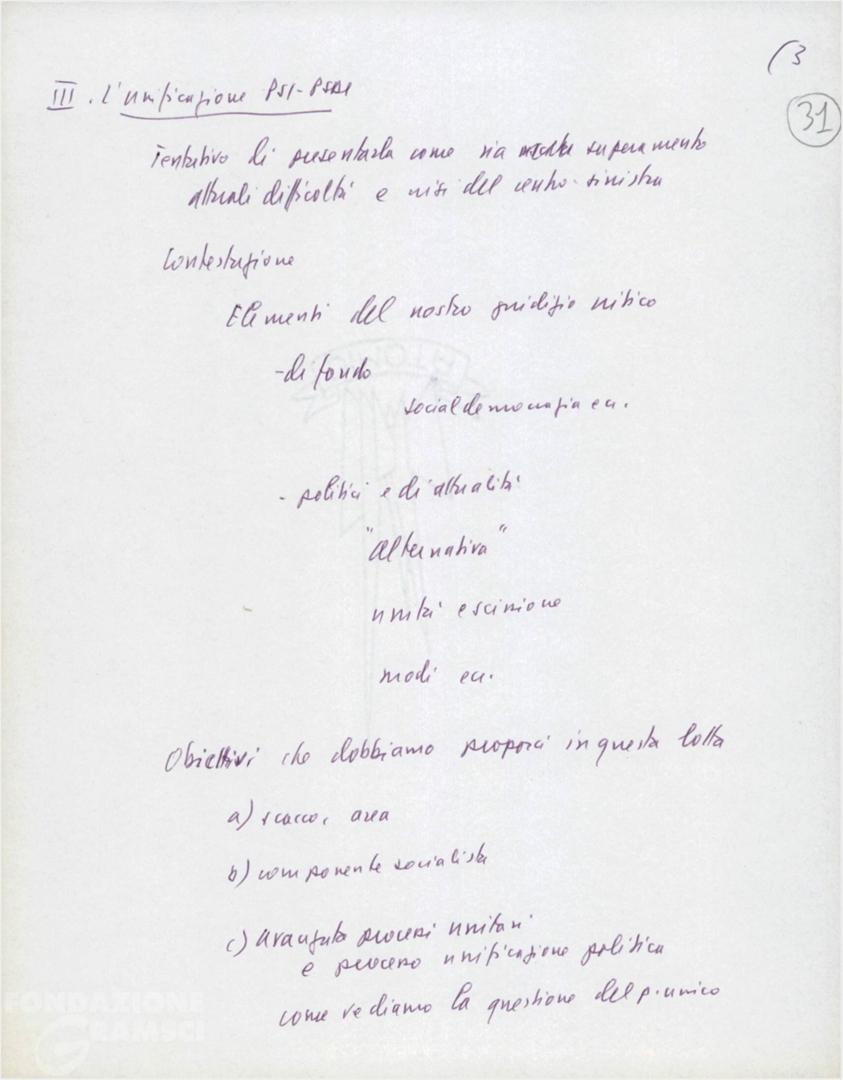 (3
31
III. L'unificazione PSI-PSDI
Tentativo di presentarla come via superamento
attuali difficoltà e crisi del centro-sinistra
Contestazione
Elementi del nostro giudizio critico
- di fondo
socialdemocrazia ecc.
- politici e di attualità
"Alternativa"
unità e scissione
modi ecc.
Obiettivi che dobbiamo proporci in questa lotta
a) scacco, area
b) componente socialista
c) avanzata processi unitari
e processo unificazione politica
come vediamo la questione del p. unico
FONDAZIONE
GRAMSCI